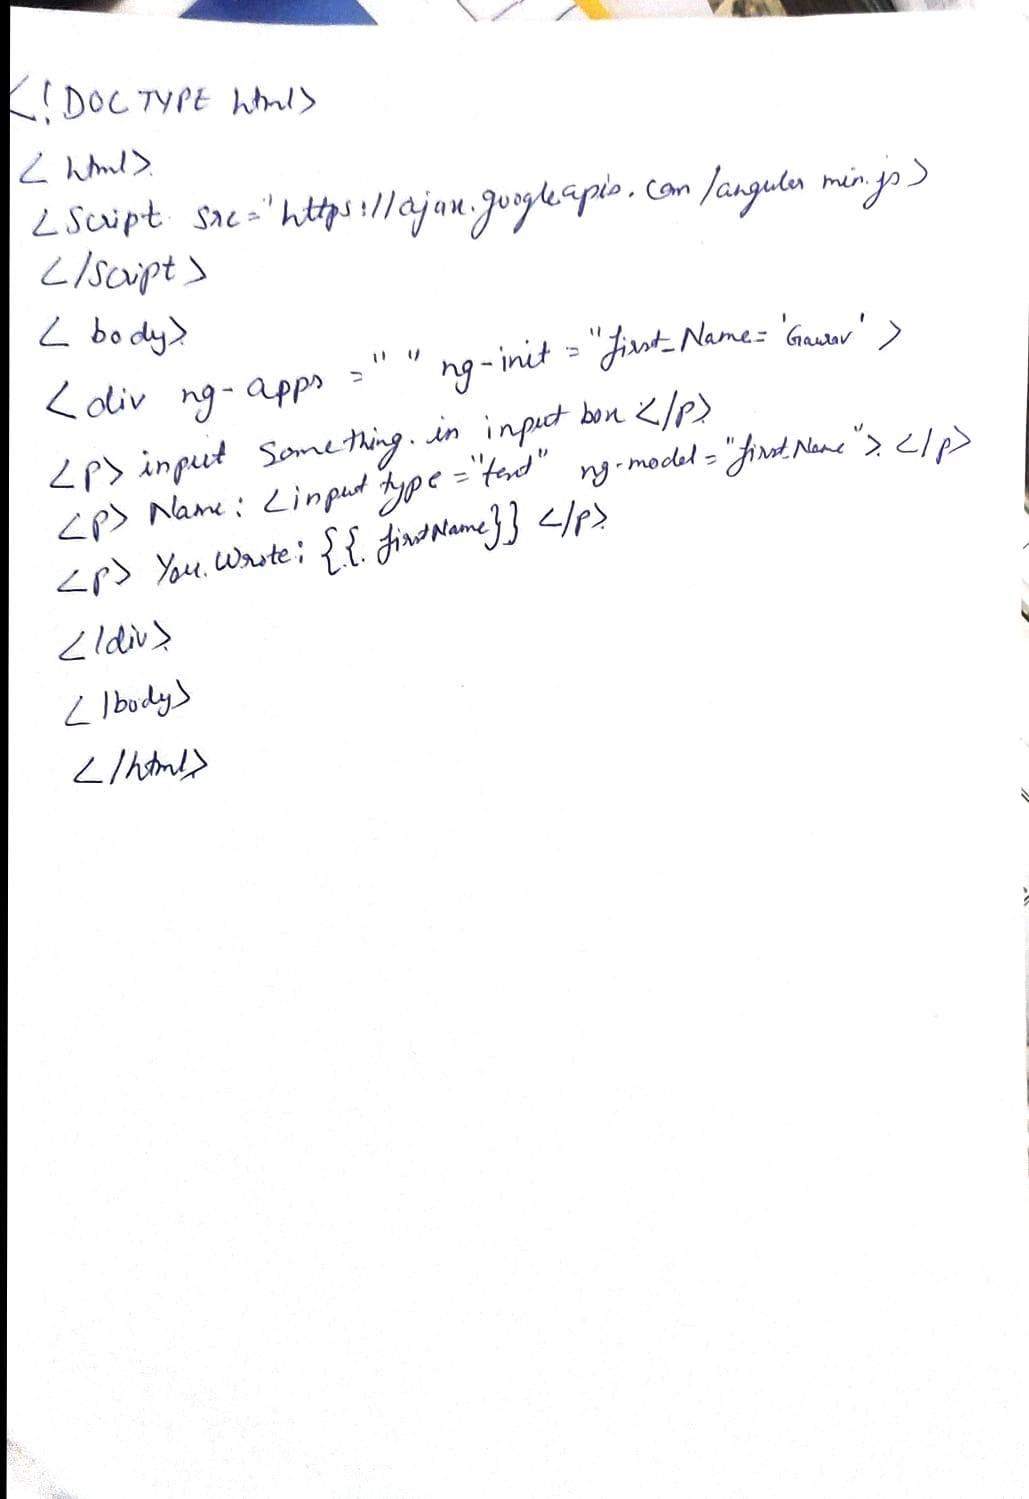 <!DOCTYPE html>
<html>
<Script src="https://ajax.googleapis.com/angular min.js>
</Script>
<body>
<div ng-apps = " " ng-init = "first_Name= 'Gaurav' >
<p> input Something. in input box </p>
<p> Name: <input type = "text" ng-model = "first Name"> </p>
<p> You. Wrote: {{ firstName}} </p>
</div>
</body>
</html>